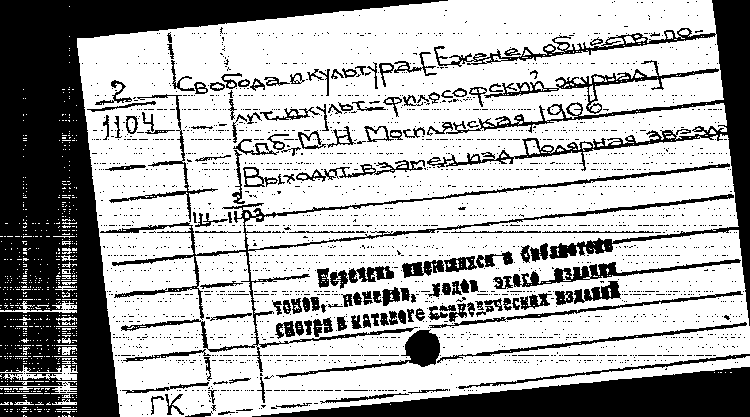 2
1104
Свобода и культура. [Еженед. обществ.-по-
лит. и культ.-философский журнал]
Спб, М. Н. Моспянская, 1906
Выходит взамен изд. Полярная звезда
2
Ш-1103.
Перечень имеющихся в библиотеке
томов, номеров, годов этого издания
смотри в каталоге периодических изданий
ГК